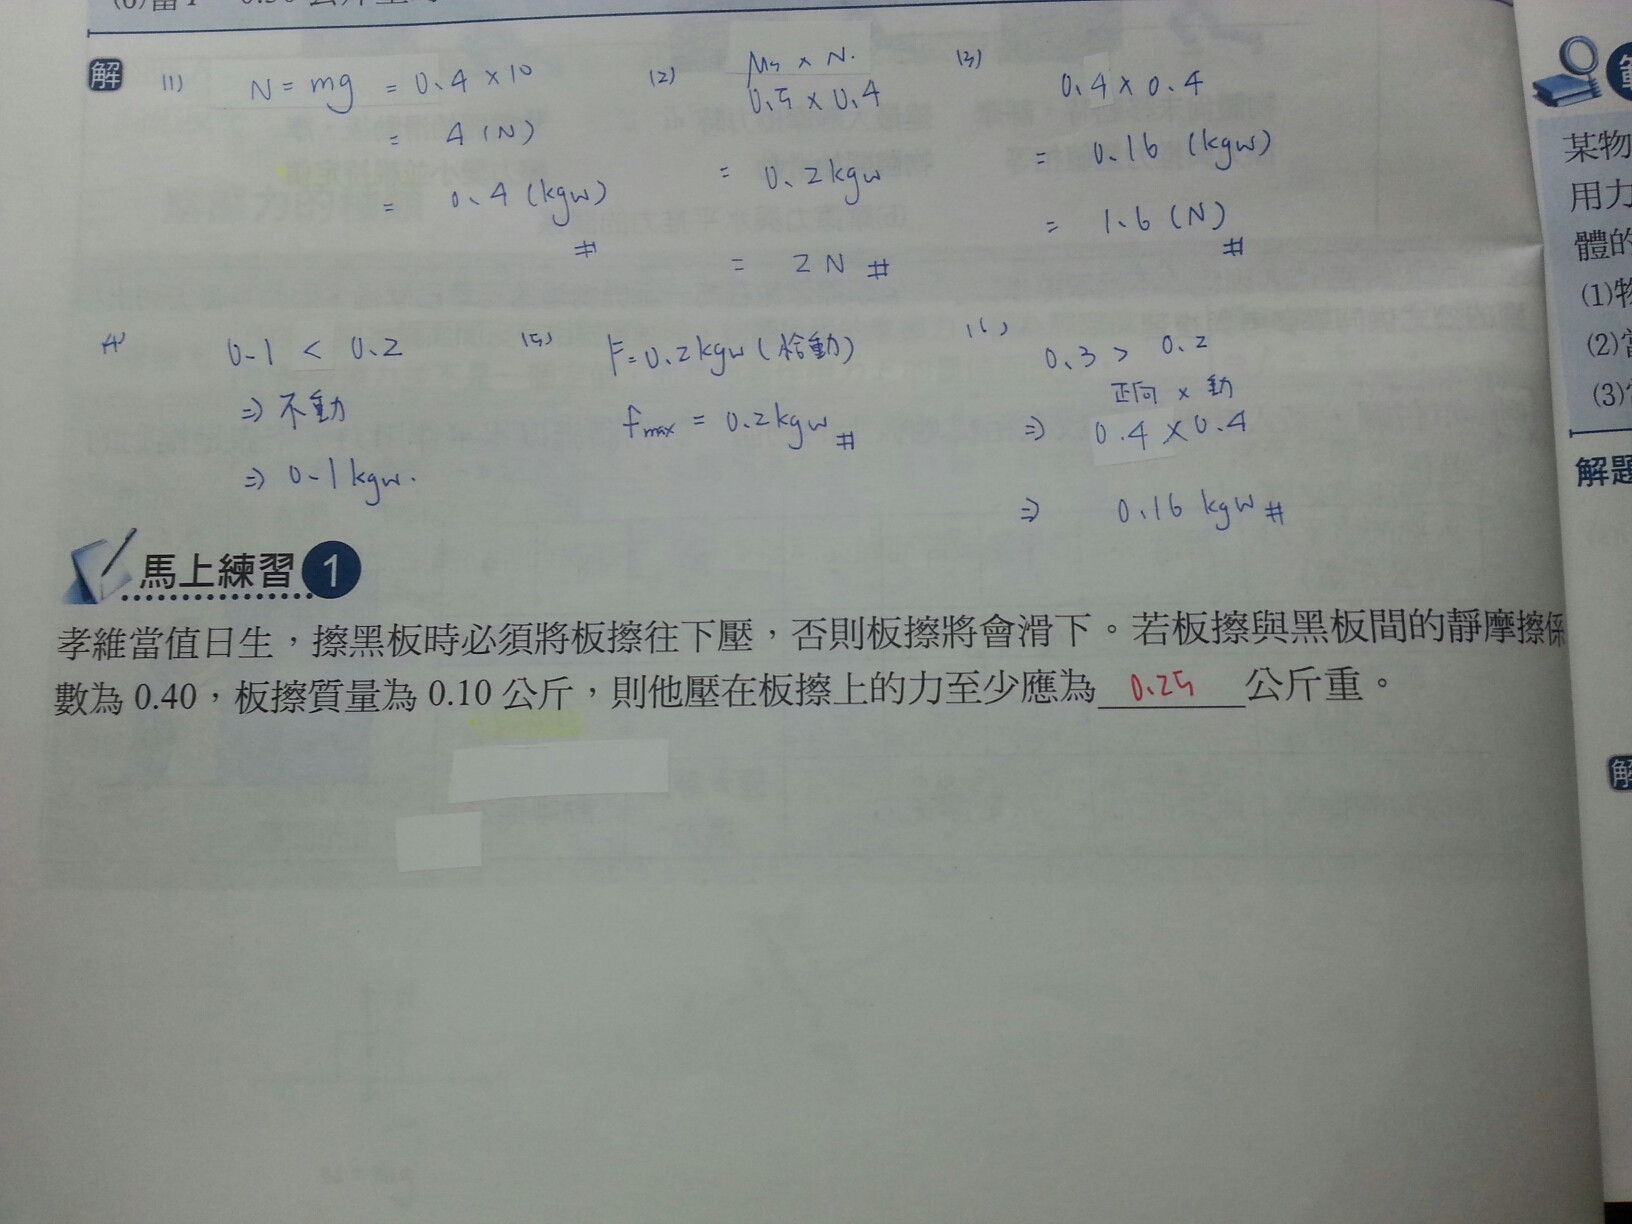 解 (1) N = mg = 0.4 × 10
= 4 (N)
= 0.4 (kgw) #
(2) μs × N.
0.5 × 0.4
= 0.2kgw
= 2N #
(3) 0.4 × 0.4
= 0.16 (kgw)
= 1.6 (N) #
(4) 0.1 < 0.2
⇒ 不動
⇒ 0.1kgw.
(5) F=0.2kgw (恰動)
fmax = 0.2kgw #
(6) 0.3 > 0.2
正向 × 動
⇒ 0.4 × 0.4
⇒ 0.16 kgw #
馬上練習 1
孝維當值日生，擦黑板時必須將板擦往下壓，否則板擦將會滑下。若板擦與黑板間的靜摩擦係
數為 0.40，板擦質量為 0.10 公斤，則他壓在板擦上的力至少應為 0.25 公斤重。
某物
用力
體的
(1)物
(2)當
(3)
解題
解